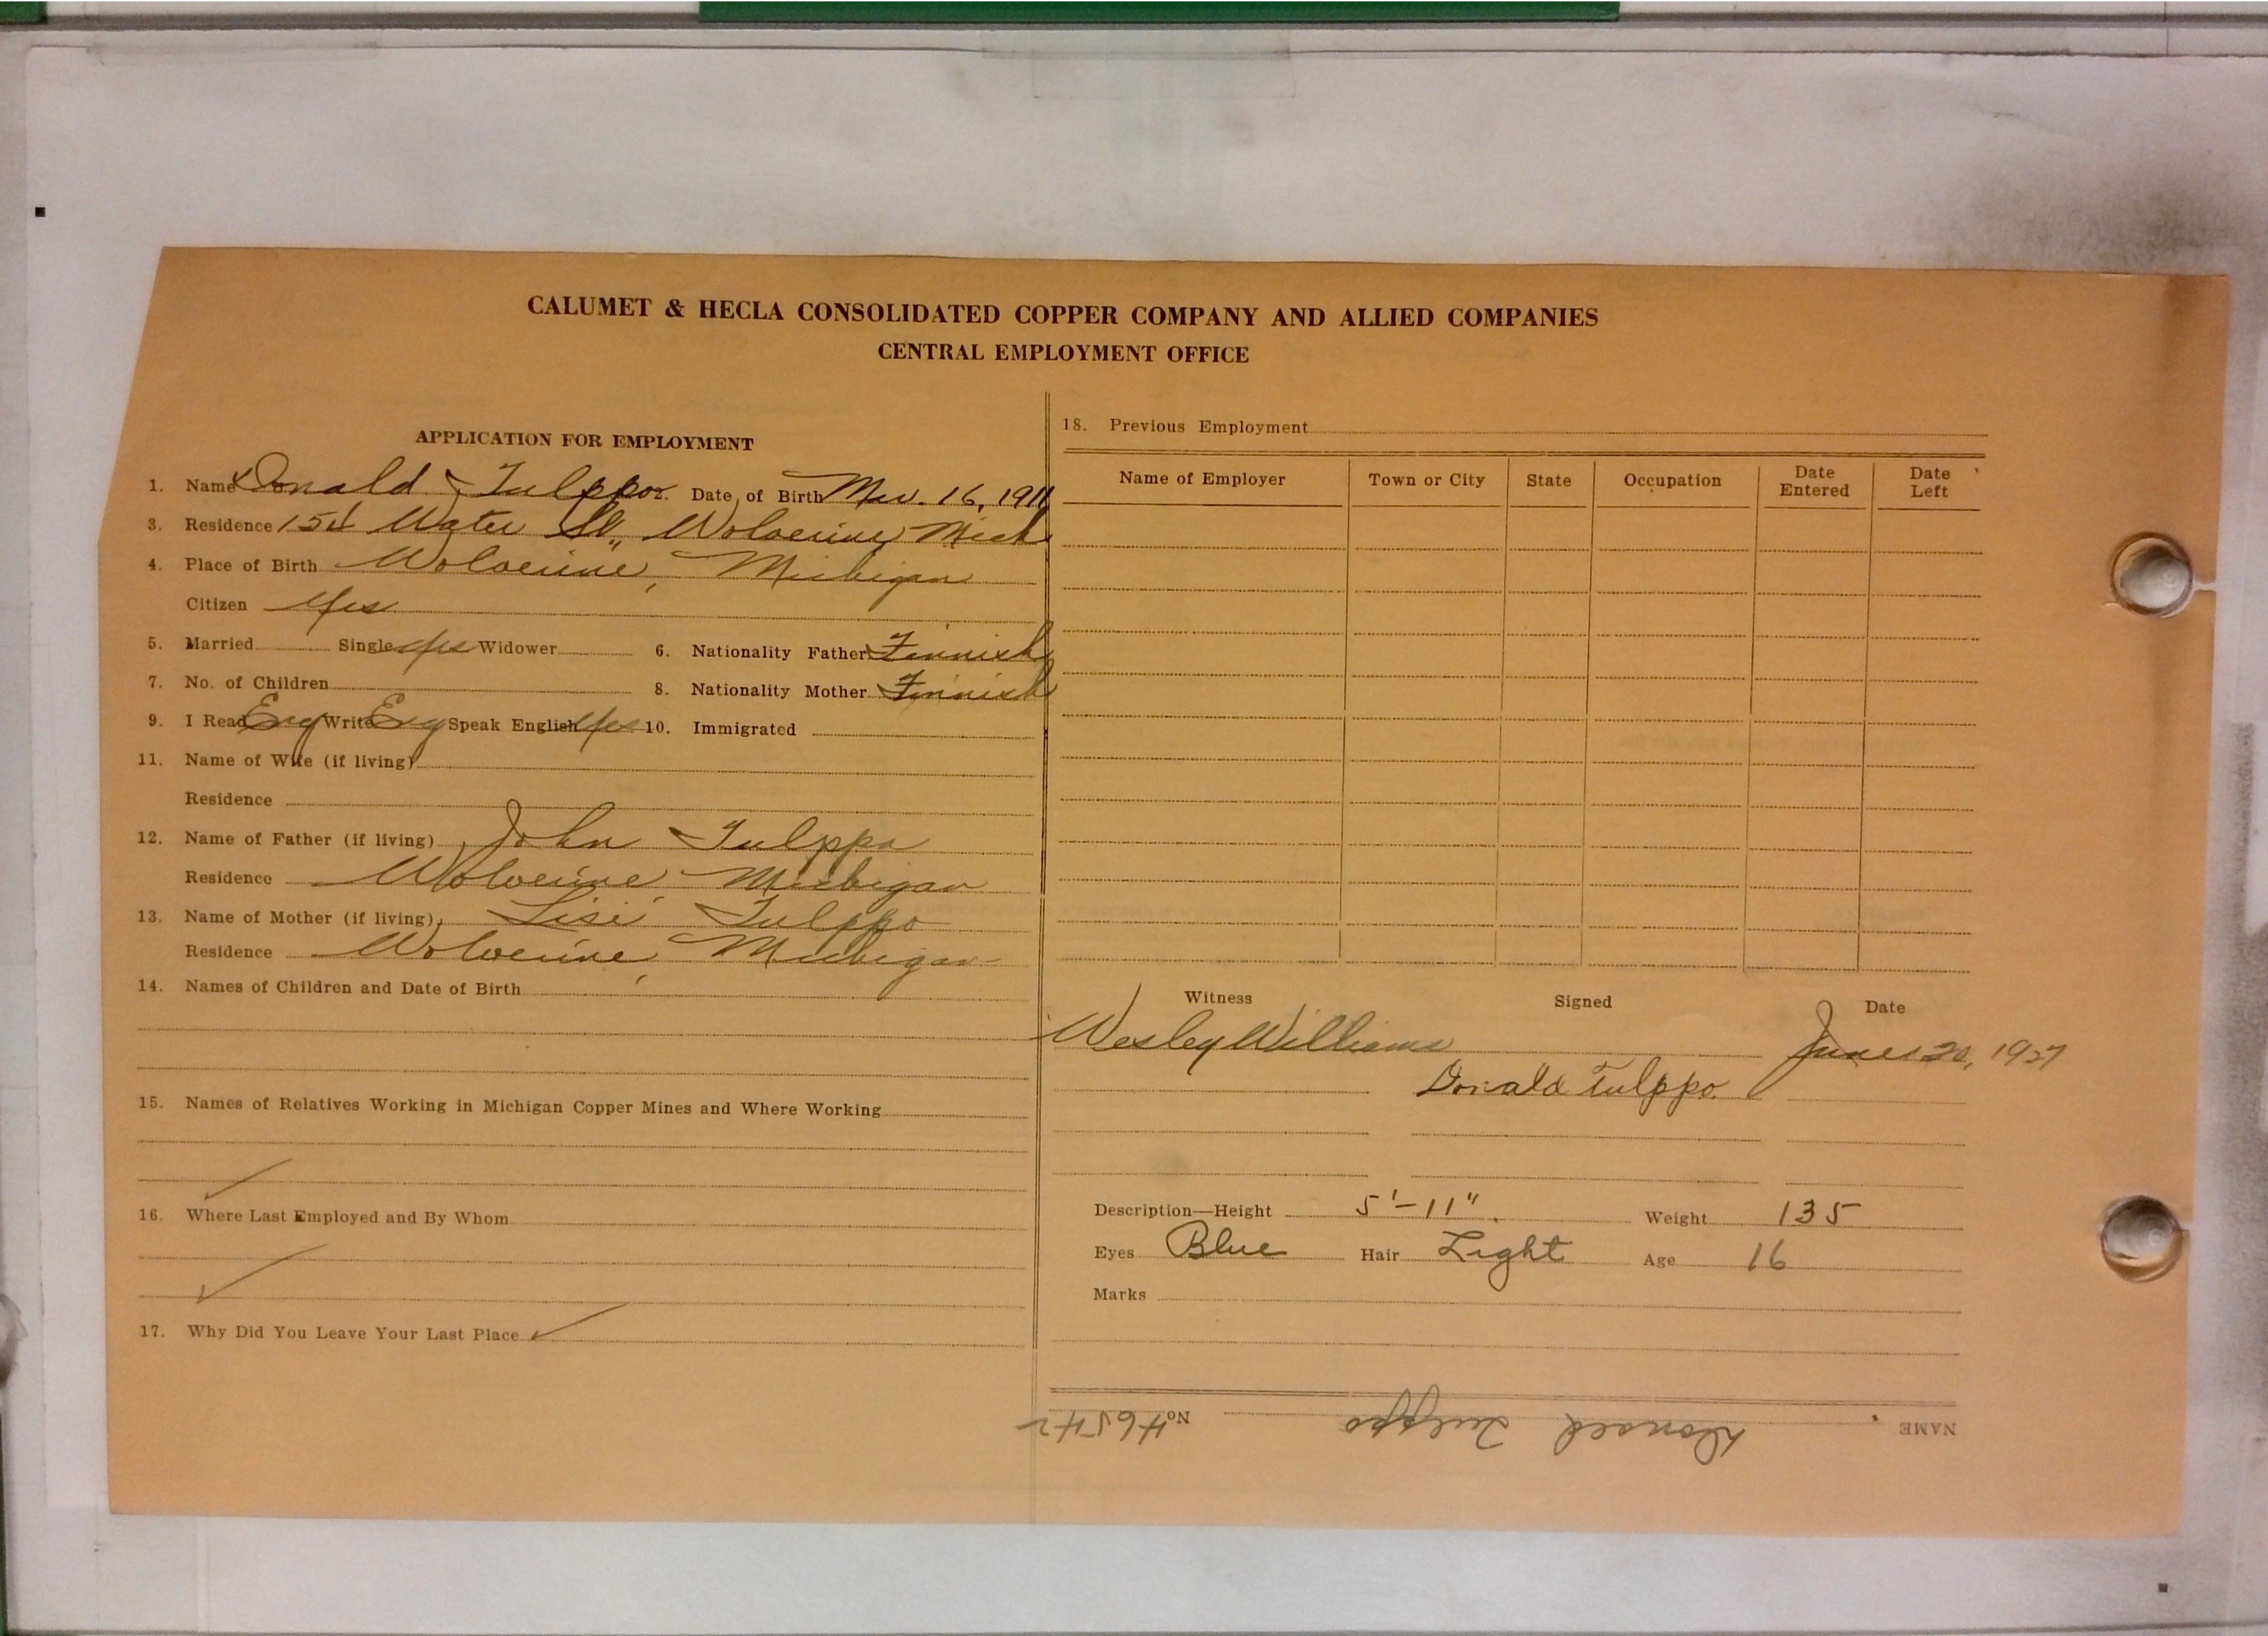 CALUMET & HECLA CONSOLIDATED COPPER COMPANY AND ALLIED COMPANIES
CENTRAL EMPLOYMENT OFFICE
APPLICATION FOR EMPLOYMENT
1. Name Donald Tulppo 2. Date of Birth Mar. 16, 1911
3. Residence 154 Water St., Wolverine, Mich
4. Place of Birth Wolverine, Michigan
Citizen Yes
5. Married Single Yes Widower 6. Nationality Father Finnish
7. No. of Children 8. Nationality Mother Finnish
9. I Read Eng Write Eng Speak English Yes 10. Immigrated
11. Name of Wife (if living)
Residence
12. Name of Father (if living) John Tulppo
Residence Wolverine, Michigan
13. Name of Mother (if living) Lisi Tulppo
Residence Wolverine, Michigan
14. Names of Children and Date of Birth
15. Names of Relatives Working in Michigan Copper Mines and Where Working
16. Where Last Employed and By Whom
17. Why Did You Leave Your Last Place
18. Previous Employment
Name of Employer Town or City State Occupation Date Entered Date Left
Witness Signed Date
Wesley Williams June 20, 1927
Donald Tulppo.
Description—Height 5'-11". Weight 135
Eyes Blue Hair Light Age 16
Marks
NAME Donald Tulppo No. 46542